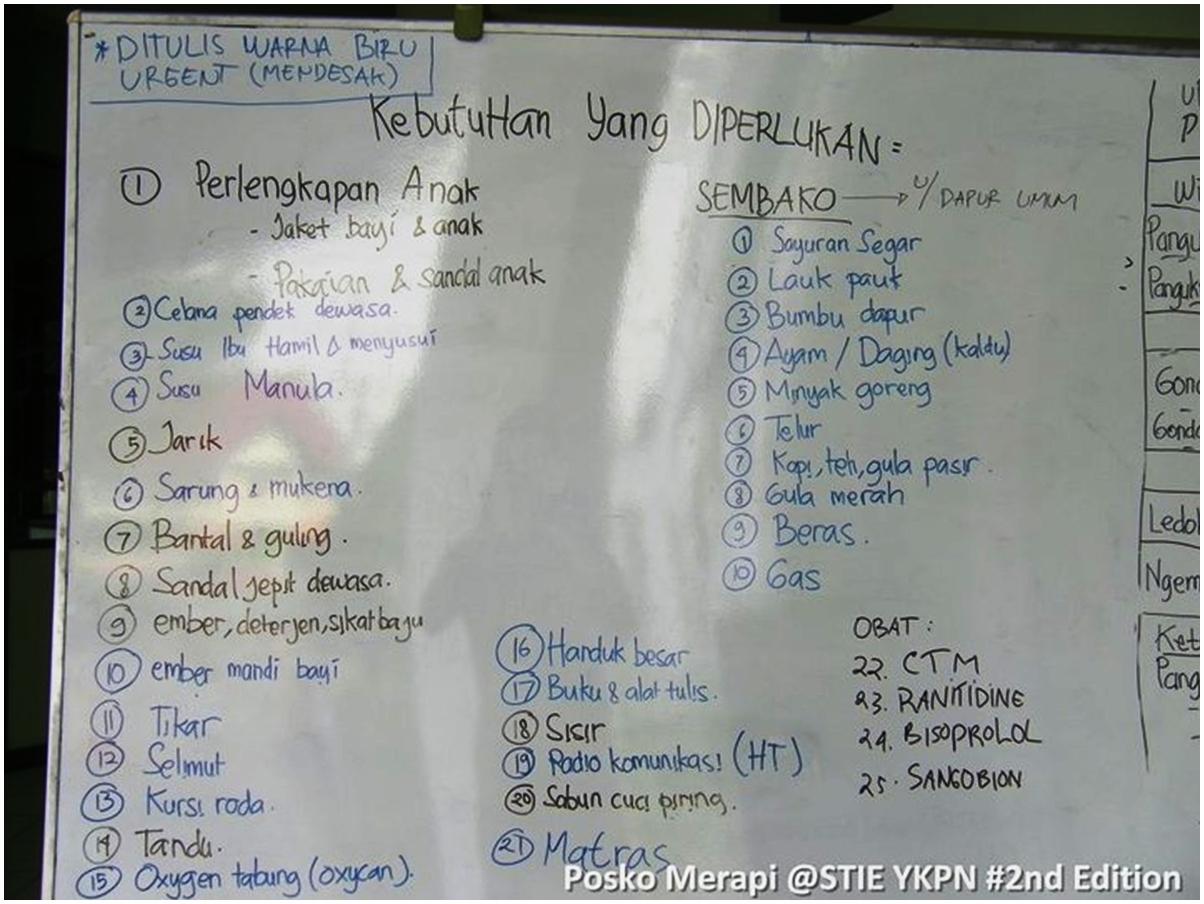 * DITULIS WARNA BIRU
URGENT (MENDESAK)
KebutuHan Yang DIPERLUKAN =
① Perlengkapan Anak
- Jaket bayi & anak
- Pakaian & sandal anak
② Celana pendek dewasa.
③ Susu Ibu Hamil & menyusui
④ Susu Manula.
⑤ Jarik
⑥ Sarung & mukena.
⑦ Bantal & guling.
⑧ Sandal jepit dewasa.
⑨ ember, deterjen, sikat baju
⑩ ember mandi bayi
⑪ Tikar
⑫ Selimut
⑬ Kursi roda.
⑭ Tandu.
⑮ Oxygen tabung (oxycan).
⑯ Handuk besar
⑰ Buku & alat tulis.
⑱ Sisir
⑲ Radio komunikasi (HT)
⑳ Sabun cuci piring.
㉑ Matras
SEMBAKO → U/ DAPUR UMUM
① Sayuran Segar
② Lauk pauk
③ Bumbu dapur
④ Ayam / Daging (kaldu)
⑤ Minyak goreng
⑥ Telur
⑦ Kopi, teh, gula pasir.
⑧ Gula merah
⑨ Beras.
⑩ Gas
OBAT :
22. CTM
23. RANITIDINE
24. BISOPROLOL
25. SANGOBION
Posko Merapi @STIE YKPN #2nd Edition